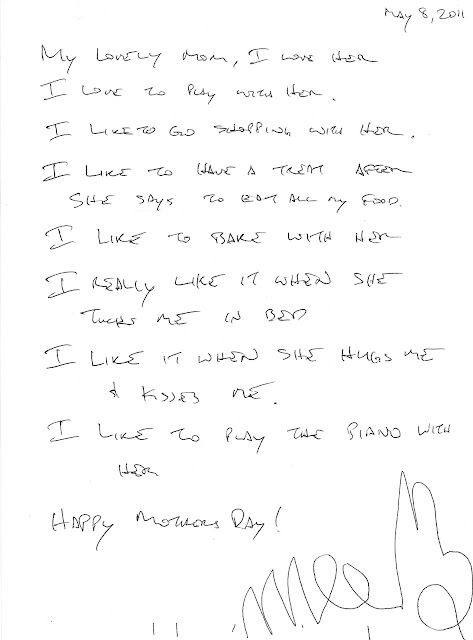 MAY 8, 2011
MY LOVELY MOM, I LOVE HER
I LOVE TO PLAY WITH HER.
I LIKE TO GO SHOPPING WITH HER.
I LIKE TO HAVE A TREAT AFTER
SHE SAYS TO EAT ALL MY FOOD.
I LIKE TO BAKE WITH HER
I REALLY LIKE IT WHEN SHE
TUCKS ME IN BED
I LIKE IT WHEN SHE HUGS ME
& KISSES ME.
I LIKE TO PLAY THE PIANO WITH
HER
HAPPY MOTHERS DAY!